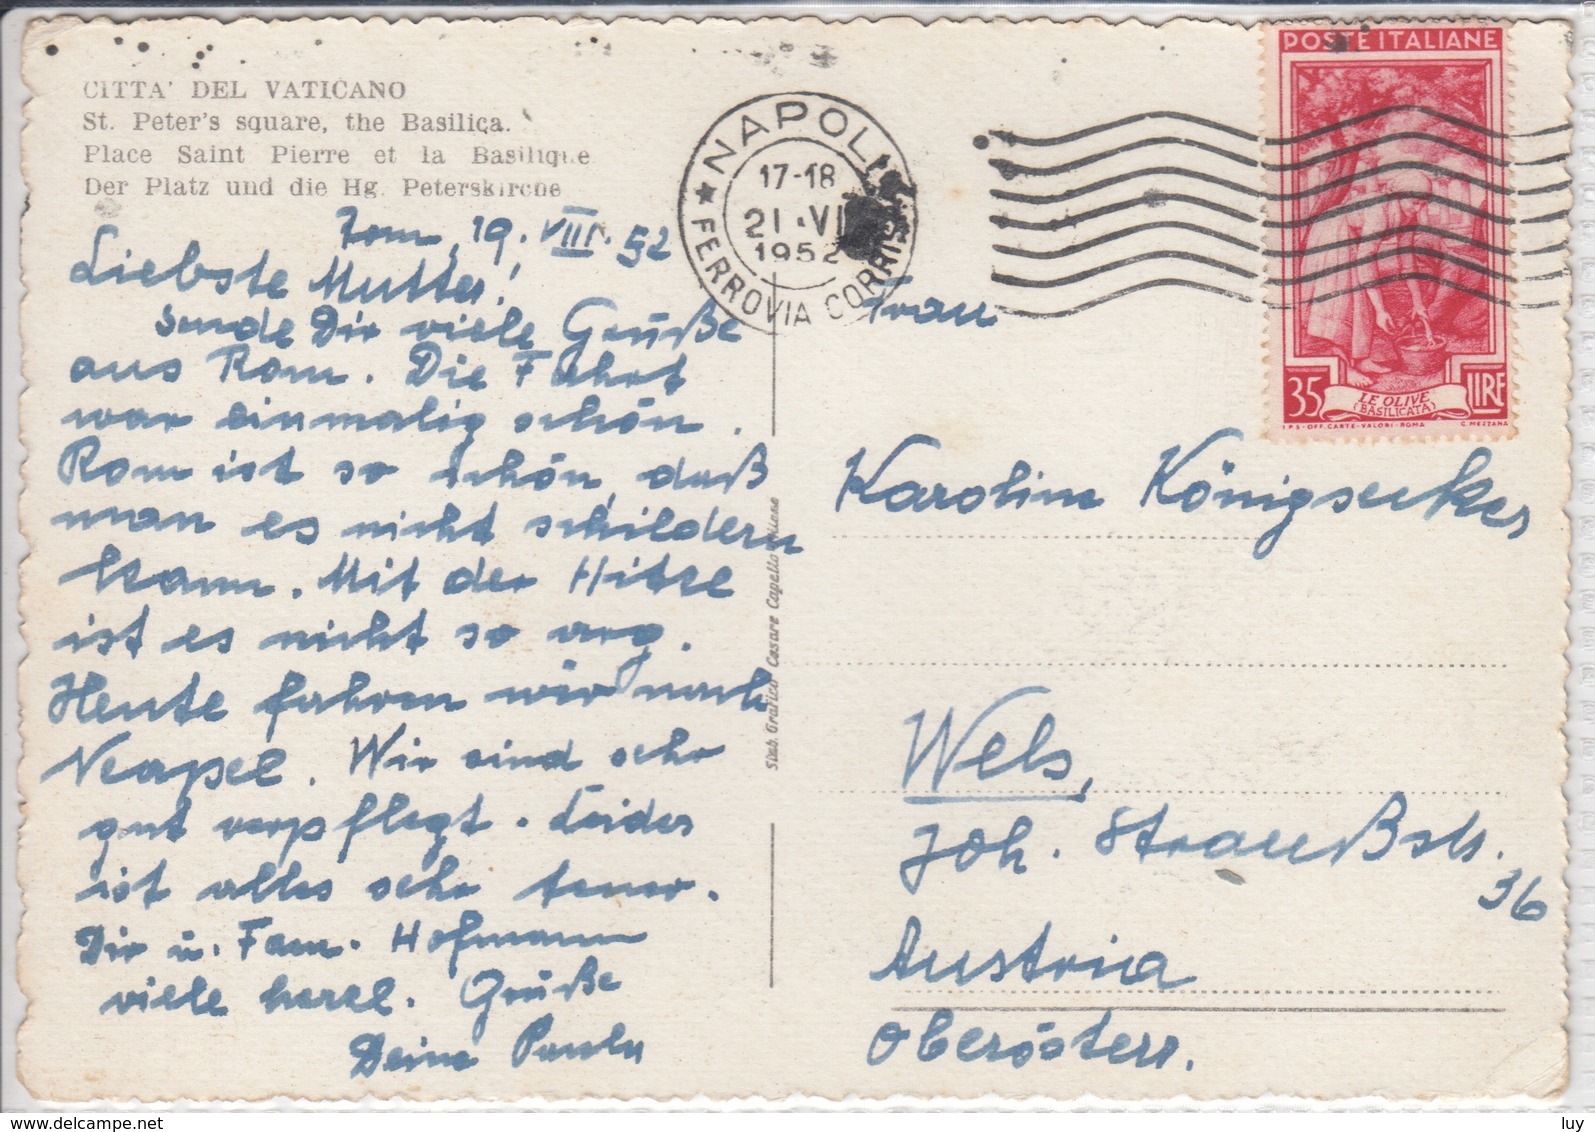 CITTA' DEL VATICANO
St. Peter's square, the Basilica.
Place Saint Pierre et la Basilique
Der Platz und die Hg. Peterskirche
Rom, 19. VIII. 52
Liebste Mutter!
sende Dir viele Grüße
aus Rom. Die Fahrt
war einmalig schön.
Rom ist so schön, daß
man es nicht schildern
kann. Mit der Hitze
ist es nicht so arg.
Heute fahren wir nach
Neapel. Wir sind sehr
gut verpflegt. Leider
ist alles sehr teuer.
Dir u. Fam. Hofmann
viele herzl. Grüße
Deine Paula
Stab. Grafico Cesare Capello
NAPOLI
FERROVIA CORRISP
17-18
21 · VI
1952
POSTE ITALIANE
35 LIRE
LE OLIVE
(BASILICATA)
I.P.S.-OFF. CARTE-VALORI-ROMA C. MEZZANA
Frau
Karoline Königsecker
Wels,
Joh. Straußstr.
36
Austria
Oberösterr.
www.delcampe.net
luy